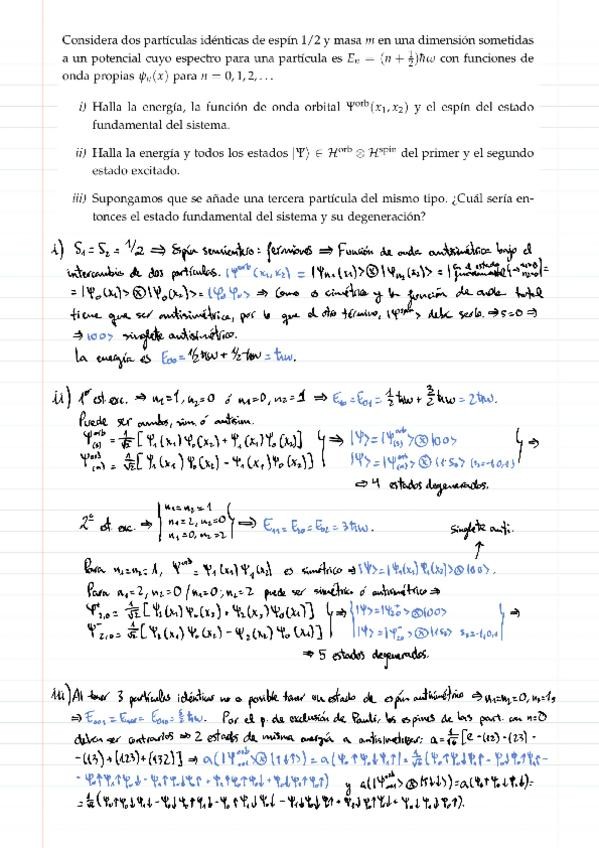 Considera dos partículas idénticas de espín 1/2 y masa m en una dimensión sometidas
a un potencial cuyo espectro para una partícula es Eₙ = (n + ½)ħω con funciones de
onda propias ψₙ(x) para n = 0, 1, 2, . . .
i) Halla la energía, la función de onda orbital Ψᵒʳᵇ(x₁, x₂) y el espín del estado
fundamental del sistema.
ii) Halla la energía y todos los estados |Ψ⟩ ∈ ℋᵒʳᵇ ⊗ ℋˢᵖⁱⁿ del primer y el segundo
estado excitado.
iii) Supongamos que se añade una tercera partícula del mismo tipo. ¿Cuál sería en-
tonces el estado fundamental del sistema y su degeneración?
i) S₁ = S₂ = 1/2 ⇒ Espín semientero: fermiones ⇒ Función de onda antisimétrica bajo el
intercambio de dos partículas. |Ψᵒʳᵇ(x₁, x₂) = |Ψn₁(x₁)⟩⊗|Ψn₂(x₂)⟩ =
= |Ψ₀(x₁)⟩⊗|Ψ₀(x₂)⟩ = |Ψ₀Ψ₀⟩ ⇒ Como es simétrica y la función de onda total
tiene que ser antisimétrica, por lo que el otro término, debe serlo. ⇒ s=0 ⇒
⇒ |00⟩ singlete antisimétrico.
La energía es E₀₀ = 1/2 ħω + 1/2 ħω = ħω.
ii) 1º est. exc. ⇒ n₁=1, n₂=0 ó n₁=0, n₂=1 ⇒ E₁₀ = E₀₁ = ½ħω + 3/2 ħω = 2ħω.
Puede ser ambos, sim. ó antisim.
Ψᵒʳᵇ₍ₛ₎ = 1/√2 [Ψ₁(x₁)Ψ₀(x₂) + Ψ₁(x₂)Ψ₀(x₁)] ⇒ |Ψ⟩ = |Ψᵒʳᵇ₍ₛ₎⟩⊗|00⟩ ⇒
Ψᵒʳᵇ₍ₐ₎ = 1/√2 [Ψ₁(x₁)Ψ₀(x₂) − Ψ₁(x₂)Ψ₀(x₁)] |Ψ⟩ = |Ψᵒʳᵇ₍ₐ₎⟩⊗|1 s₂⟩ (s₂=-1,0,1)
⇒ 4 estados degenerados.
2º est. exc. ⇒ n₁=n₂=1 n₁=2, n₂=0 n₁=0, n₂=2 ⇒ E₁₁ = E₂₀ = E₀₂ = 3ħω. singlete anti.
Para n₁=n₂=1, Ψᵒʳᵇ = Ψ₁(x₁)Ψ₁(x₂) es simétrico ⇒ |Ψ⟩ = |Ψ₁(x₁)Ψ₁(x₂)⟩⊗|00⟩.
Para n₁=2, n₂=0 / n₁=0, n₂=2 puede ser simétrico ó antisimétrico ⇒
Ψ⁺₂,₀ = 1/√2 [Ψ₂(x₁)Ψ₀(x₂) + Ψ₂(x₂)Ψ₀(x₁)] ⇒ |Ψ⟩ = |Ψ⁺₂₀⟩⊗|00⟩ ⇒
Ψ⁻₂,₀ = 1/√2 [Ψ₂(x₁)Ψ₀(x₂) − Ψ₂(x₂)Ψ₀(x₁)] |Ψ⟩ = |Ψ⁻₂₀⟩⊗|1 s₂⟩ s₂=-1,0,1
⇒ 5 estados degenerados.
iii) Al tener 3 partículas idénticas no es posible tener un estado de espín antisimétrico ⇒ n₁=n₂=0, n₃=1,
⇒ E₀₀₁ = E₁₀₀ = E₀₁₀ = 5/2 ħω. Por el p. de exclusión de Pauli, los espines de las part. con n=0
deben ser contrarios ⇒ 2 estados de misma energía a antisimetrizar: a = 1/√6 [e − (12) − (23) −
− (13) + (123) + (132)] ⇒